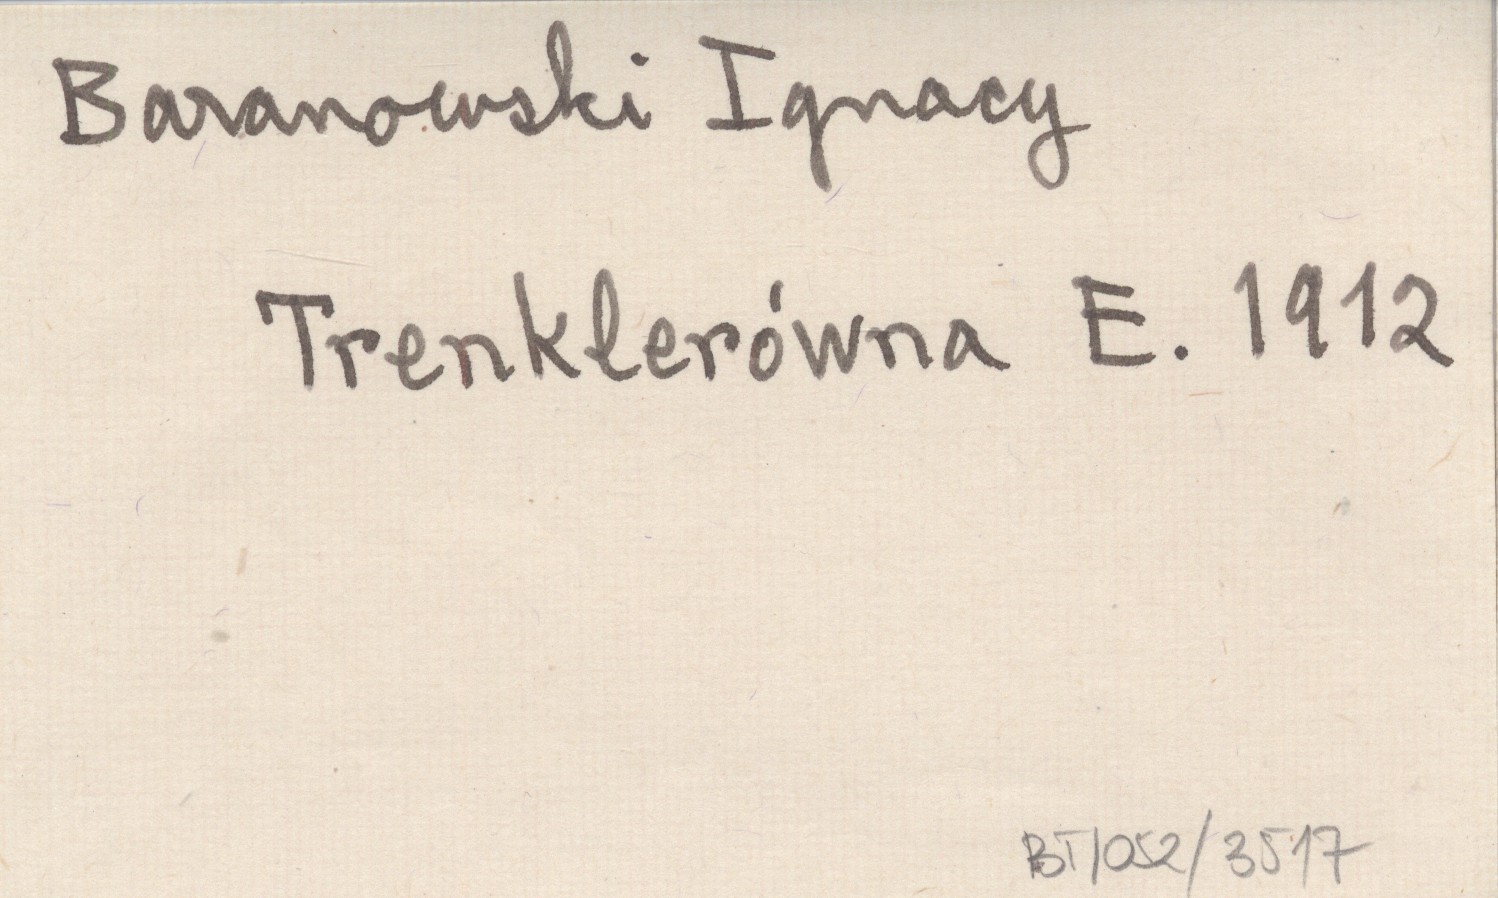 Baranowski Ignacy
Trenklerówna E. 1912
BT/052/3517